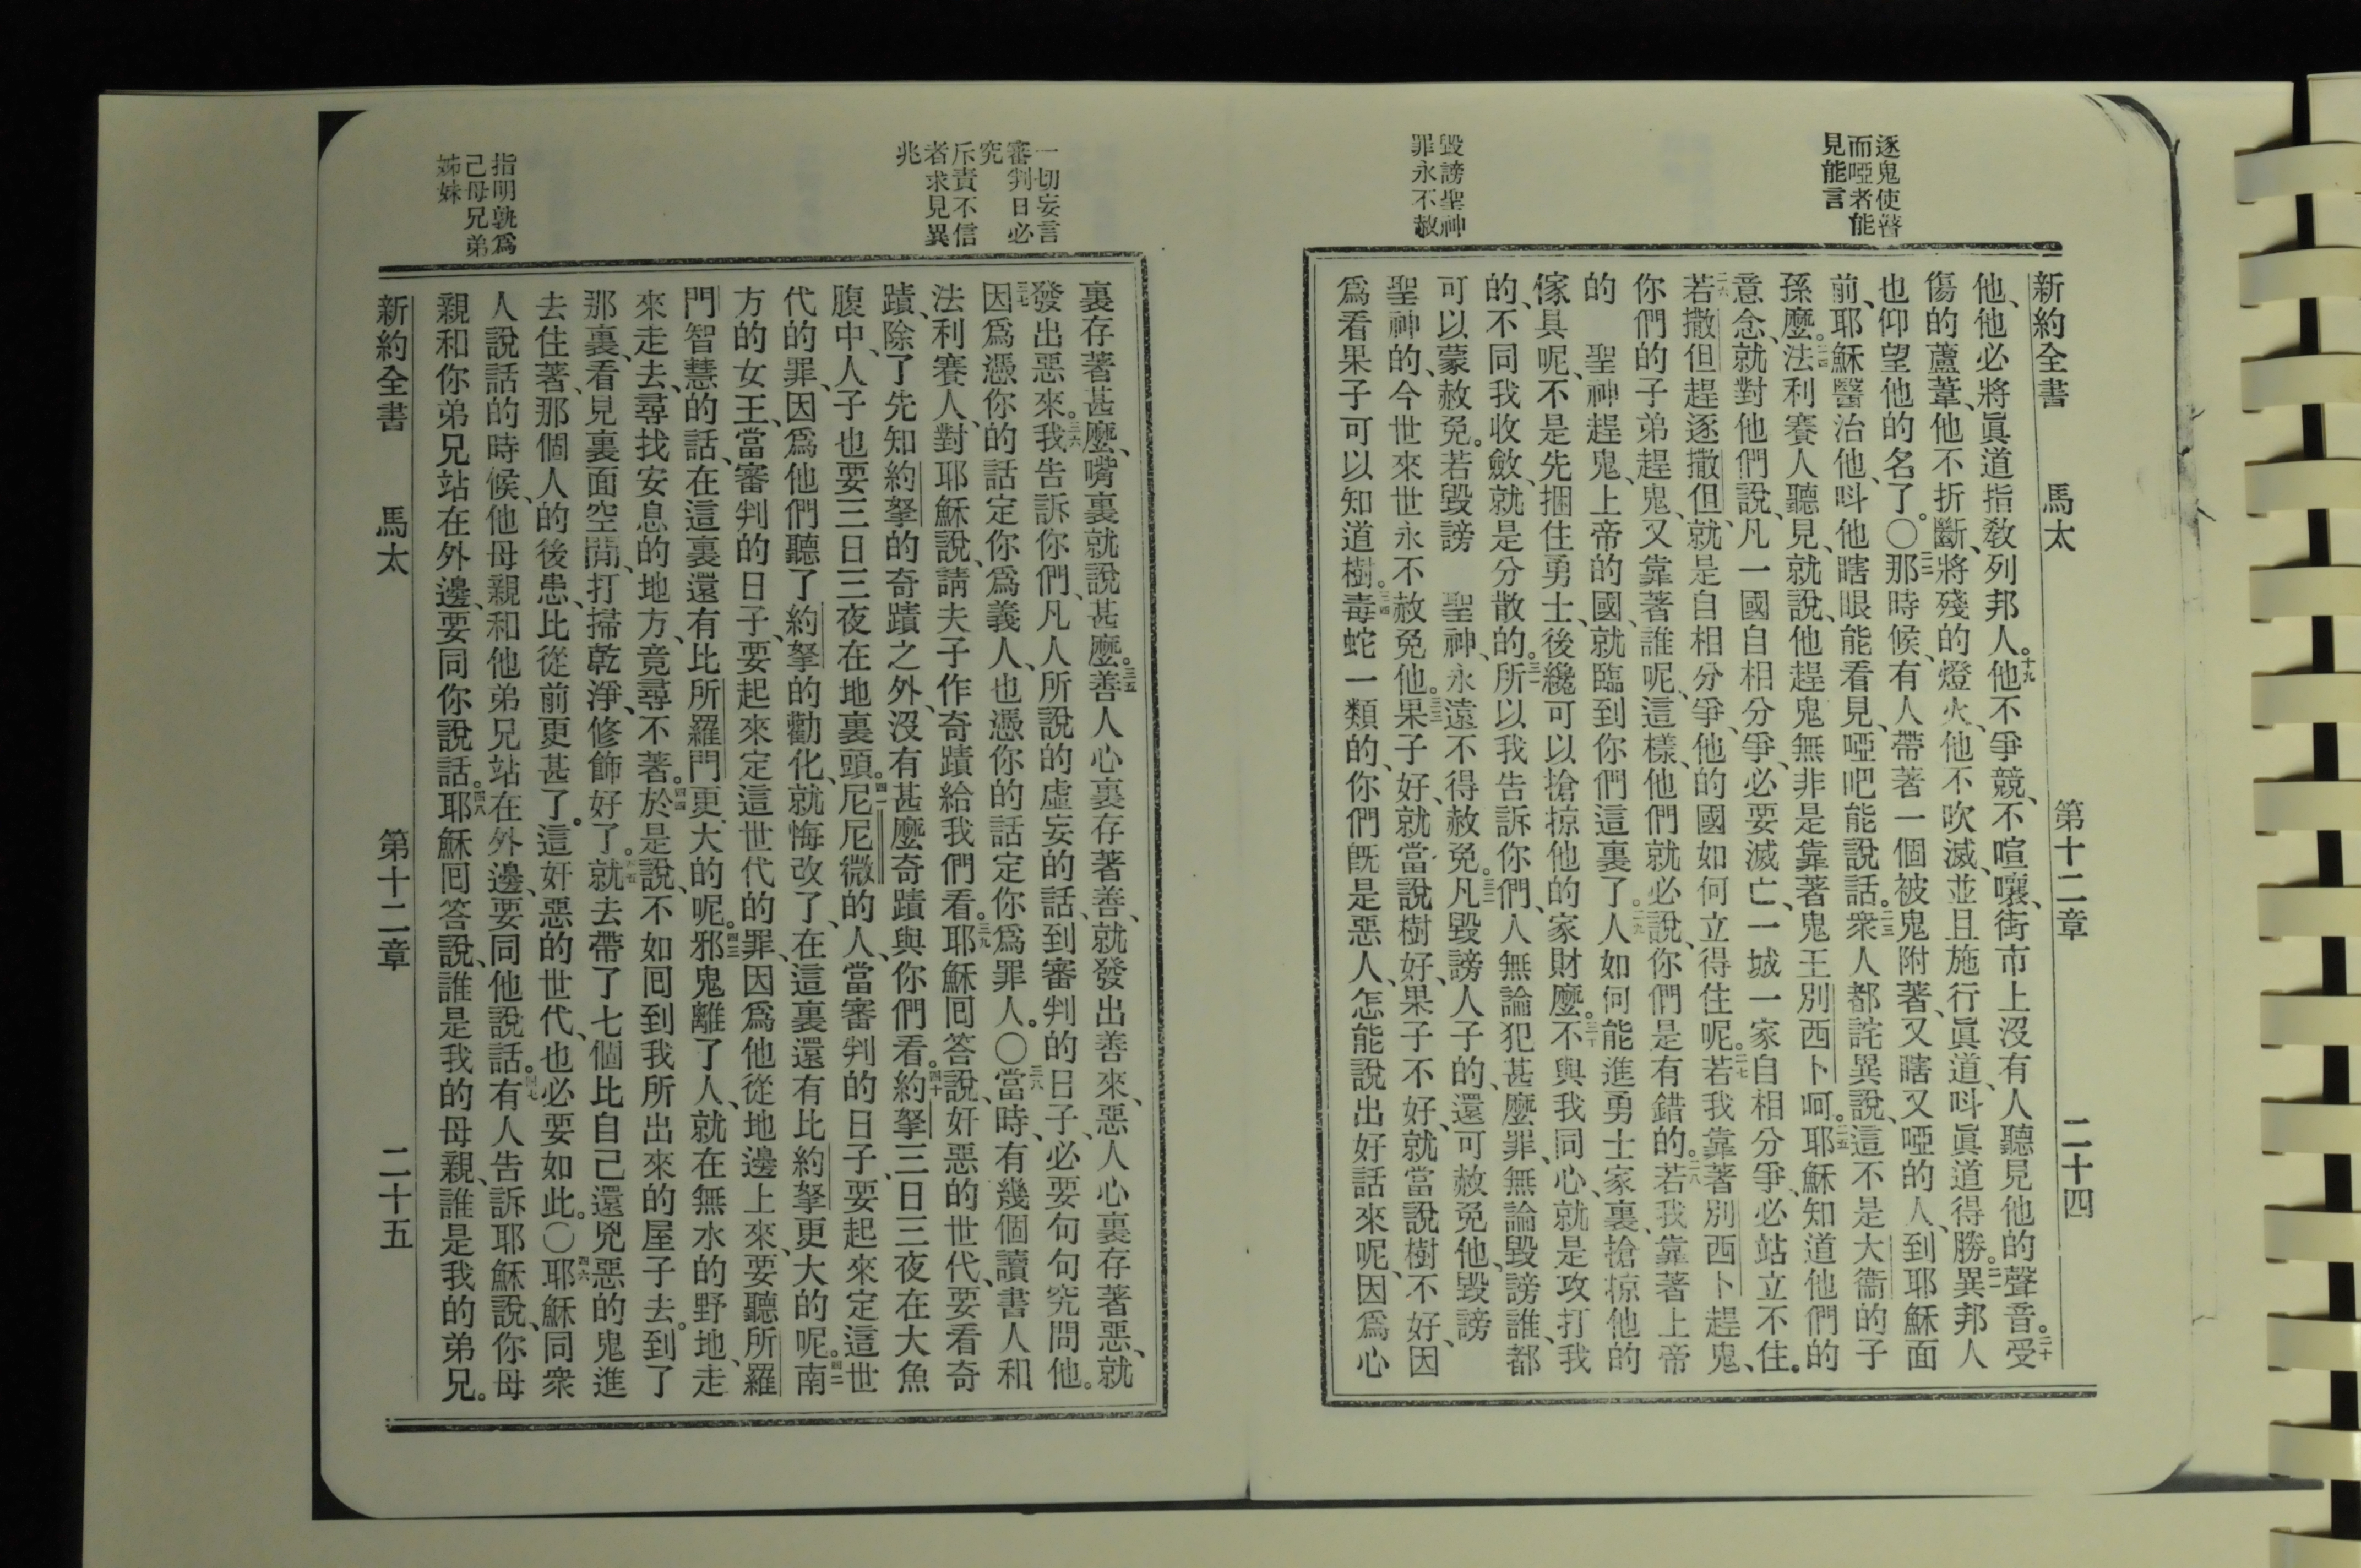 逐鬼使瞽
而啞者能
見能言
毀謗聖神
罪永不赦
新約全書 馬太 第十二章 二十四
他、他必將眞道指敎列邦人。十九他不爭競、不喧嚷、街市上沒有人聽見他的聲音。二十受
傷的蘆葦、他不折斷、將殘的燈火、他不吹滅、並且施行眞道、呌眞道得勝。二一異邦人
也仰望他的名了。〇二二那時候、有人帶著一個被鬼附著、又瞎又啞的人、到耶穌面
前、耶穌醫治他、呌他瞎眼能看見、啞吧能說話。二三衆人都詫異說、這不是大衞的子
孫麼。二四法利賽人聽見、就說、他趕鬼無非是靠著鬼王別西卜呵。二五耶穌知道他們的
意念、就對他們說、凡一國自相分爭、必要滅亡、一城一家自相分爭、必站立不住。
二六若撒但趕逐撒但、就是自相分爭、他的國如何立得住呢。二七若我靠著別西卜趕鬼、
你們的子弟趕鬼、又靠著誰呢、這樣、他們就必說、你們是有錯的。二八若我靠著上帝
的 聖神趕鬼、上帝的國、就臨到你們這裏了。二九人如何能進勇士家裏、搶掠他的
傢具呢、不是先捆住勇士、後纔可以搶掠他的家財麼。三十不與我同心、就是攻打我
的、不同我收斂、就是分散的。三一所以我告訴你們、人無論犯甚麼罪、無論毀謗誰、都
可以蒙赦免。若毀謗 聖神、永遠不得赦免。三二凡毀謗人子的、還可赦免他、毀謗
聖神的、今世來世永不赦免他。三三果子好、就當說樹好、果子不好、就當說樹不好、因
爲看果子可以知道樹。三四毒蛇一類的、你們旣是惡人、怎能說出好話來呢、因爲心
一切妄言
審判日必
究
斥責不信
者求見異
兆
指明孰爲
己母兄弟
姊妹
裏存著甚麼、嘴裏就說甚麼。三五善人心裏存著善、就發出善來、惡人心裏存著惡、就
發出惡來。三六我告訴你們、凡人所說的虛妄的話、到審判的日子、必要句句究問他。
三七因爲憑你的話定你爲義人、也憑你的話定你爲罪人。〇三八當時、有幾個讀書人和
法利賽人、對耶穌說、請夫子作奇蹟給我們看。三九耶穌囘答說、奸惡的世代、要看奇
蹟、除了先知約拏的奇蹟之外、沒有甚麼奇蹟與你們看。四十約拏三日三夜在大魚
腹中、人子也要三日三夜在地裏頭。四一尼尼微的人、當審判的日子、要起來定這世
代的罪、因爲他們聽了約拏的勸化、就悔改了、在這裏還有比約拏更大的呢。四二南
方的女王、當審判的日子、要起來定這世代的罪、因爲他從地邊上來、要聽所羅
門智慧的話、在這裏還有比所羅門更大的呢。四三邪鬼離了人、就在無水的野地、走
來走去、尋找安息的地方、竟尋不著。四四於是說、不如囘到我所出來的屋子去。到了
那裏、看見裏面空閒、打掃乾淨、修飾好了。四五就去帶了七個比自己還兇惡的鬼進
去住著、那個人的後患、比從前更甚了。這奸惡的世代、也必要如此。〇四六耶穌同衆
人說話的時候、他母親和他弟兄站在外邊、要同他說話。四七有人告訴耶穌說、你母
親和你弟兄站在外邊、要同你說話。四八耶穌囘答說、誰是我的母親、誰是我的弟兄。
新約全書 馬太 第十二章 二十五